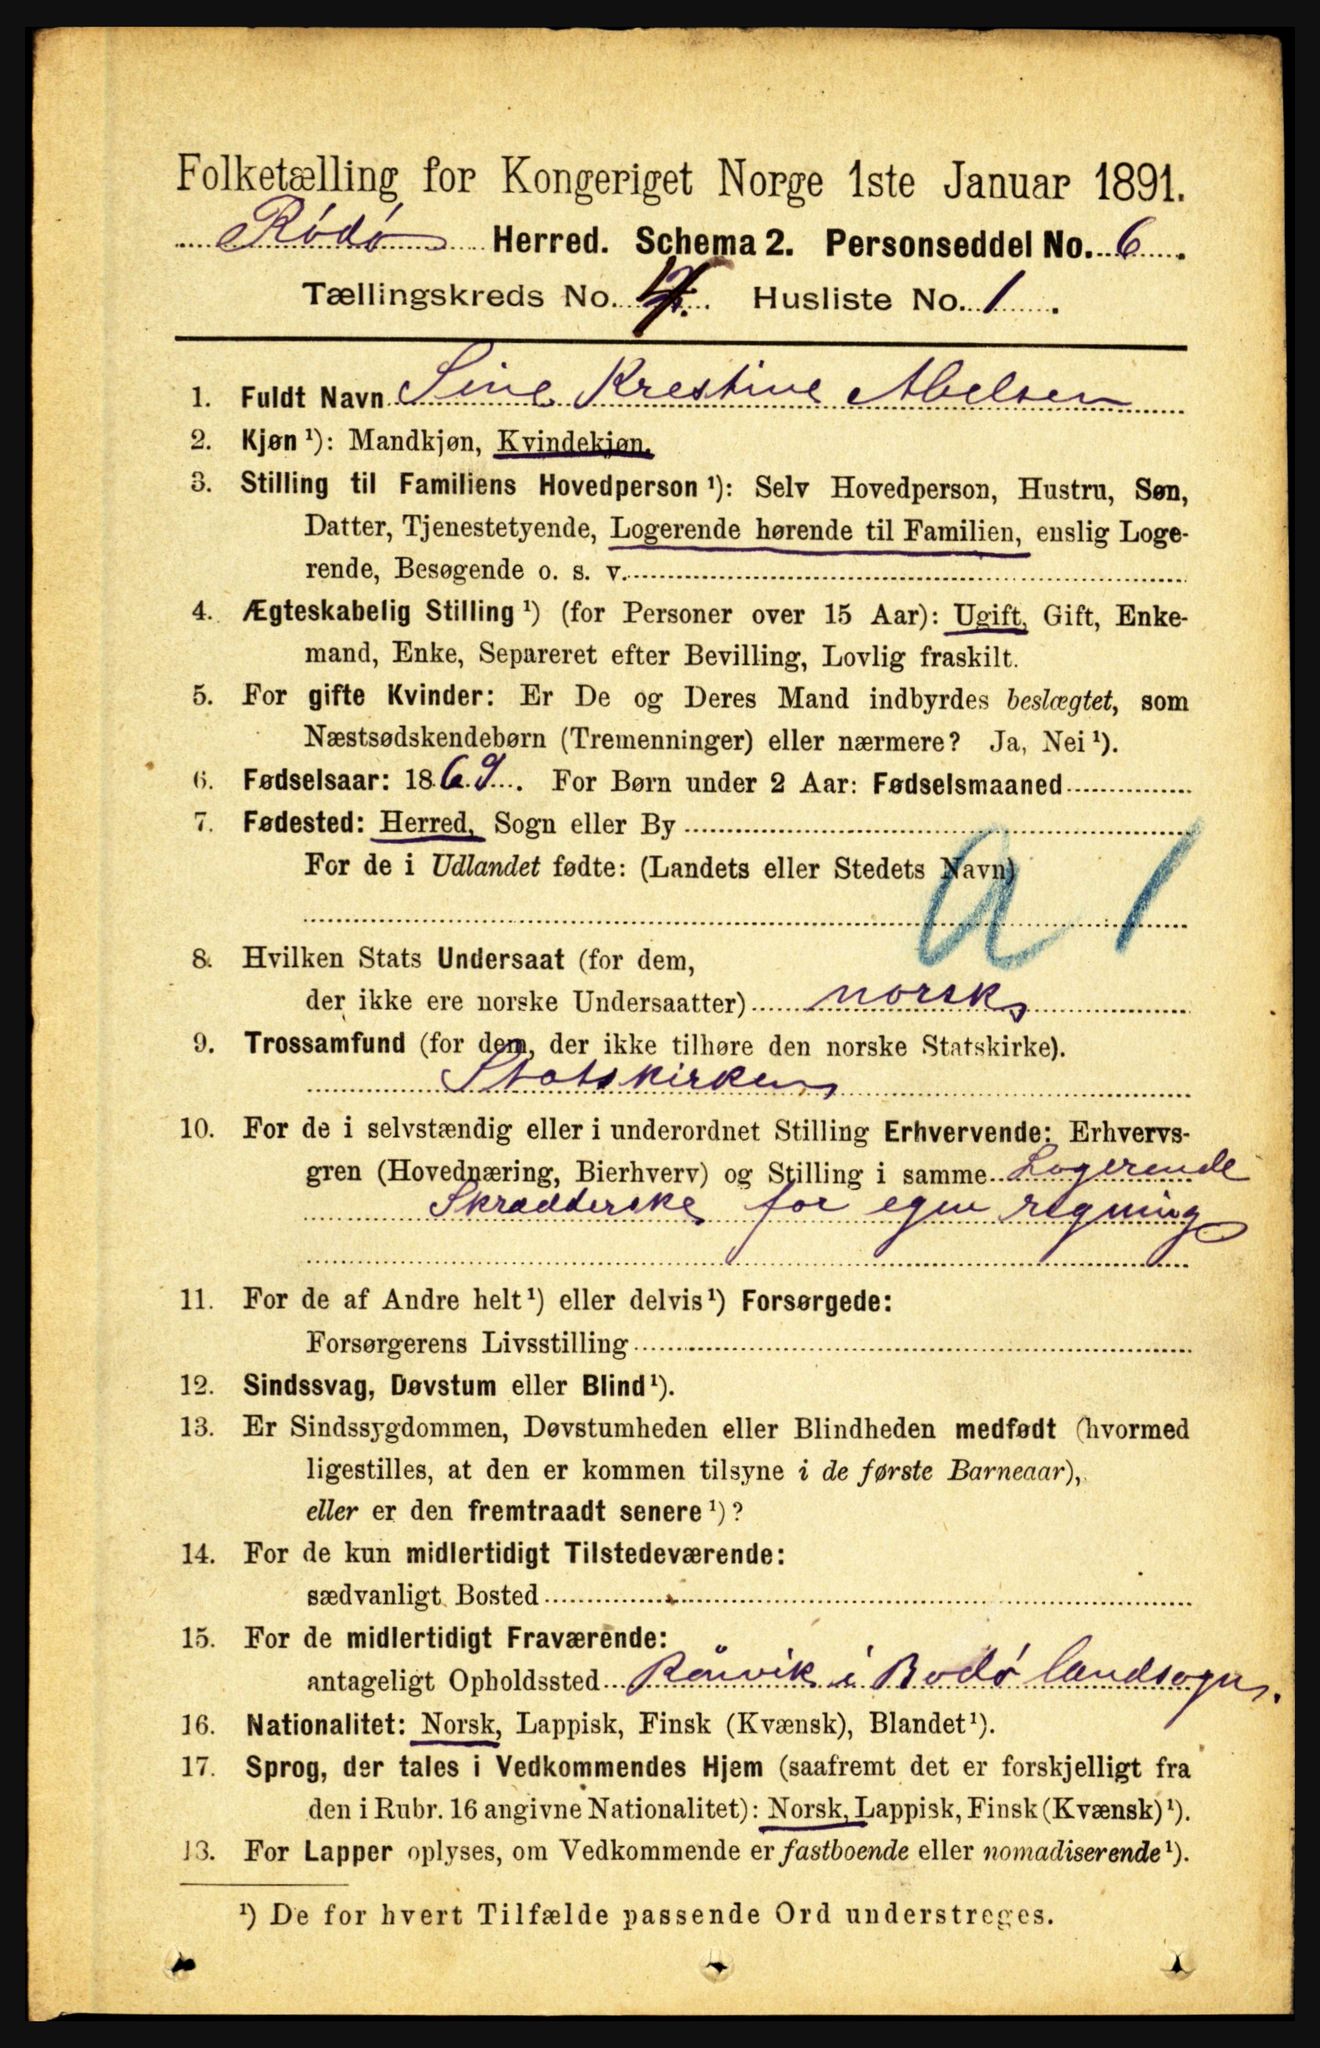 Folketælling for Kongeriget Norge 1ste Januar 1891.
Rödö Herred. Schema 2. Personseddel No. 6.
Tællingskreds No. Husliste No. 1.
1. Fuldt Navn Sine Krestine Abelsen
2. Kjøn ¹): Mandkjøn, Kvindekjøn.
3. Stilling til Familiens Hovedperson ¹): Selv Hovedperson, Hustru, Søn,
Datter, Tjenestetyende, Logerende hørende til Familien, enslig Loge-
rende, Besøgende o. s. v.
4. Ægteskabelig Stilling ¹) (for Personer over 15 Aar): Ugift, Gift, Enke-
mand, Enke, Separeret efter Bevilling, Lovlig fraskilt.
5. For gifte Kvinder: Er De og Deres Mand indbyrdes beslægtet, som
Næstsødskendebørn (Tremenninger) eller nærmere? Ja, Nei ¹).
6. Fødselsaar: 1869. For Børn under 2 Aar: Fødselsmaaned
7. Fødested: Herred, Sogn eller By
For de i Udlandet fødte: (Landets eller Stedets Navn)
a 1
8. Hvilken Stats Undersaat (for dem,
der ikke ere norske Undersaatter) norsk
9. Trossamfund (for dem, der ikke tilhøre den norske Statskirke).
Statskirken
10. For de i selvstændig eller i underordnet Stilling Erhvervende: Erhvervs-
gren (Hovednæring, Bierhverv) og Stilling i samme Logerende
Skrædderske for egen regning
11. For de af Andre helt ¹) eller delvis ¹) Forsørgede:
Forsørgerens Livsstilling
12. Sindssvag, Døvstum eller Blind ¹).
13. Er Sindssygdommen, Døvstumheden eller Blindheden medfødt (hvormed
ligestilles, at den er kommen tilsyne i de første Barneaar),
eller er den fremtraadt senere ¹)?
14. For de kun midlertidigt Tilstedeværende:
sædvanligt Bosted
15. For de midlertidigt Fraværende:
antageligt Opholdssted Rönvik i Bodö landsogn.
16. Nationalitet: Norsk, Lappisk, Finsk (Kvænsk), Blandet ¹).
17. Sprog, der tales i Vedkommendes Hjem (saafremt det er forskjelligt fra
den i Rubr. 16 angivne Nationalitet): Norsk, Lappisk, Finsk (Kvænsk) ¹).
13. For Lapper oplyses, om Vedkommende er fastboende eller nomadiserende ¹).
¹) De for hvert Tilfælde passende Ord understreges.